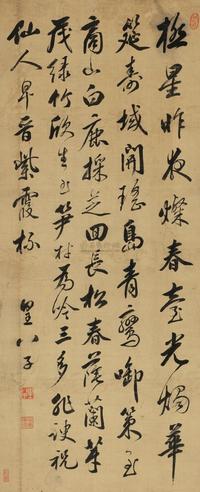 極星昨夜燦春臺光燭華
筵壽域開瑤島青鸞啣策至
商山白鹿採芝回長松春蔭蘭芽
茂綠竹欣生玉笋材為吟三多非諛祝
仙人早晉紫霞杯 皇八子